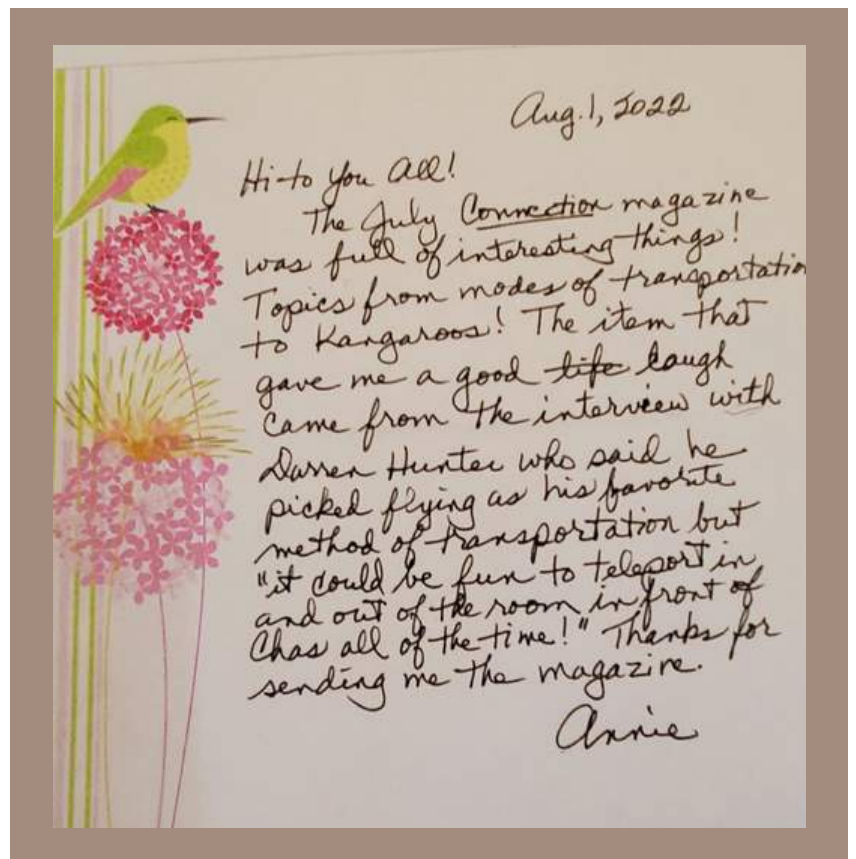 Aug. 1, 2022
Hi to You All!
The July Connection magazine
was full of interesting things!
Topics from modes of transportation
to Kangaroos! The item that
gave me a good life laugh
came from the interview with
Darren Hunter who said he
picked flying as his favorite
method of transportation but
"it could be fun to teleport in
and out of the room in front of
Chas all of the time!" Thanks for
sending me the magazine.
Annie